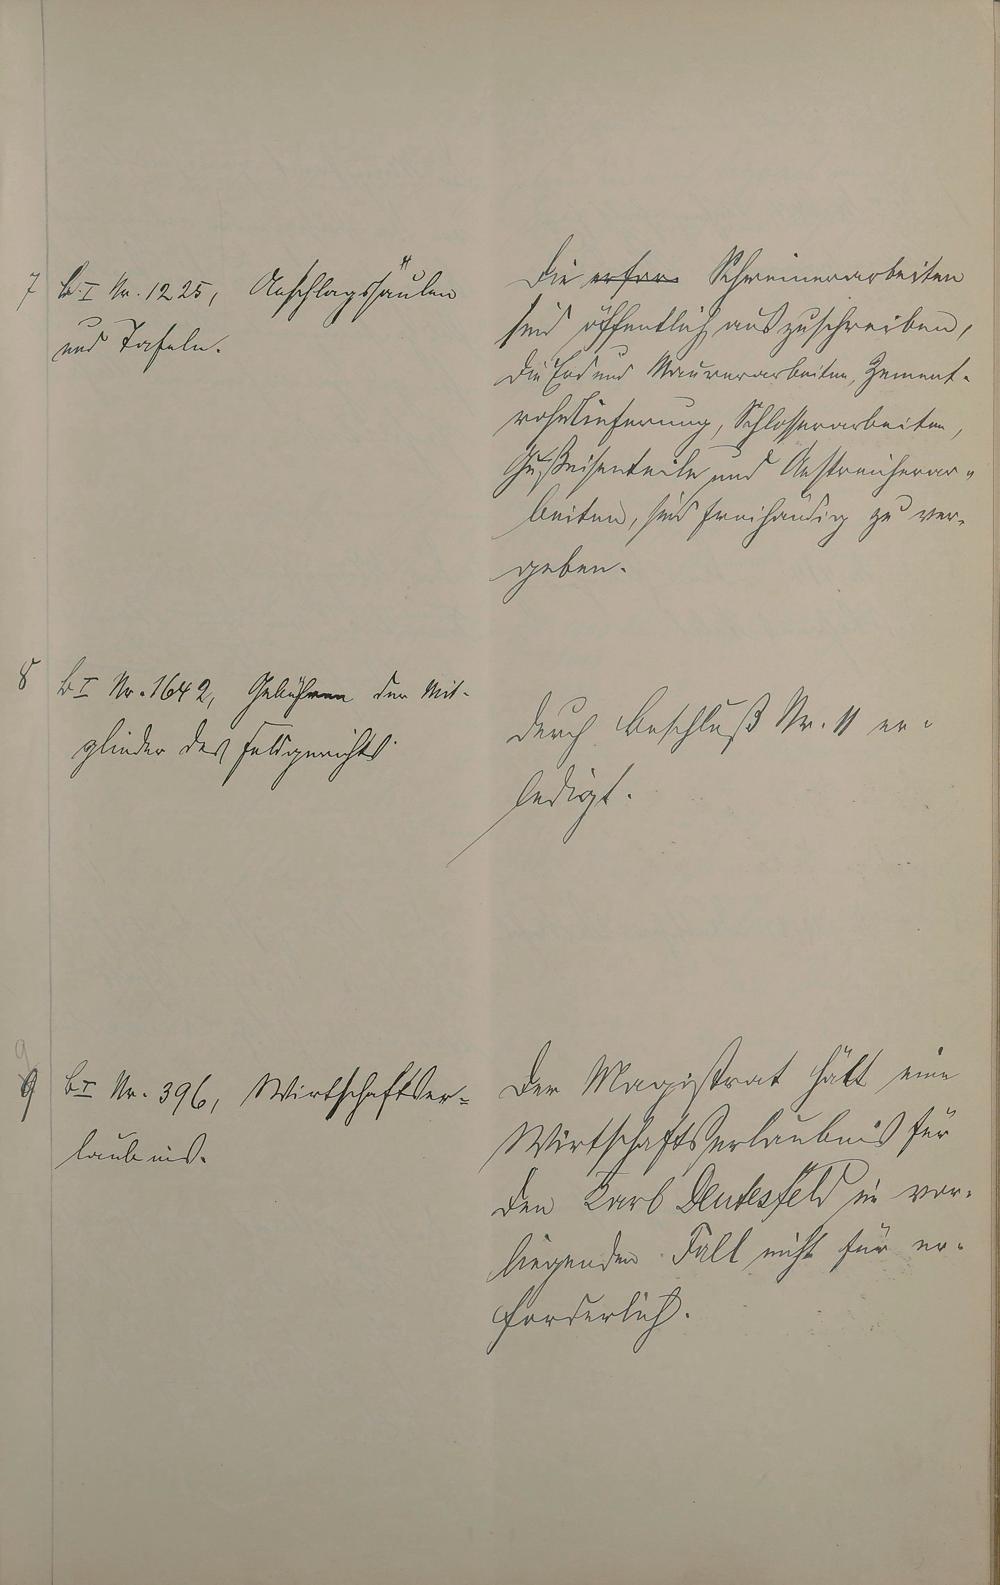 7 B. I Nr. 1225, Anschlagssäulen
und Tafeln.
Die erfor. Schreinerarbeiten
sind öffentlich auszuschreiben,
die Erd und Maurerarbeiten, Zement-
rohrlieferung, Schlosserarbeiten,
Gußeisenteile und Anstreicherar-
beiten, sind freihändig zu ver-
geben.
8 B I Nr. 1642, Gebühren der Mit-
glieder des Feldgerichts.
durch Beschluß Nr. 11 er-
ledigt.
9
9 B I Nr. 396, Wirtschaftser-
laubnis.
Der Magistrat hält eine
Wirtschaftserlaubnis für
den Karl Deutesfeld in vor-
liegenden Fall nicht für er-
forderlich.